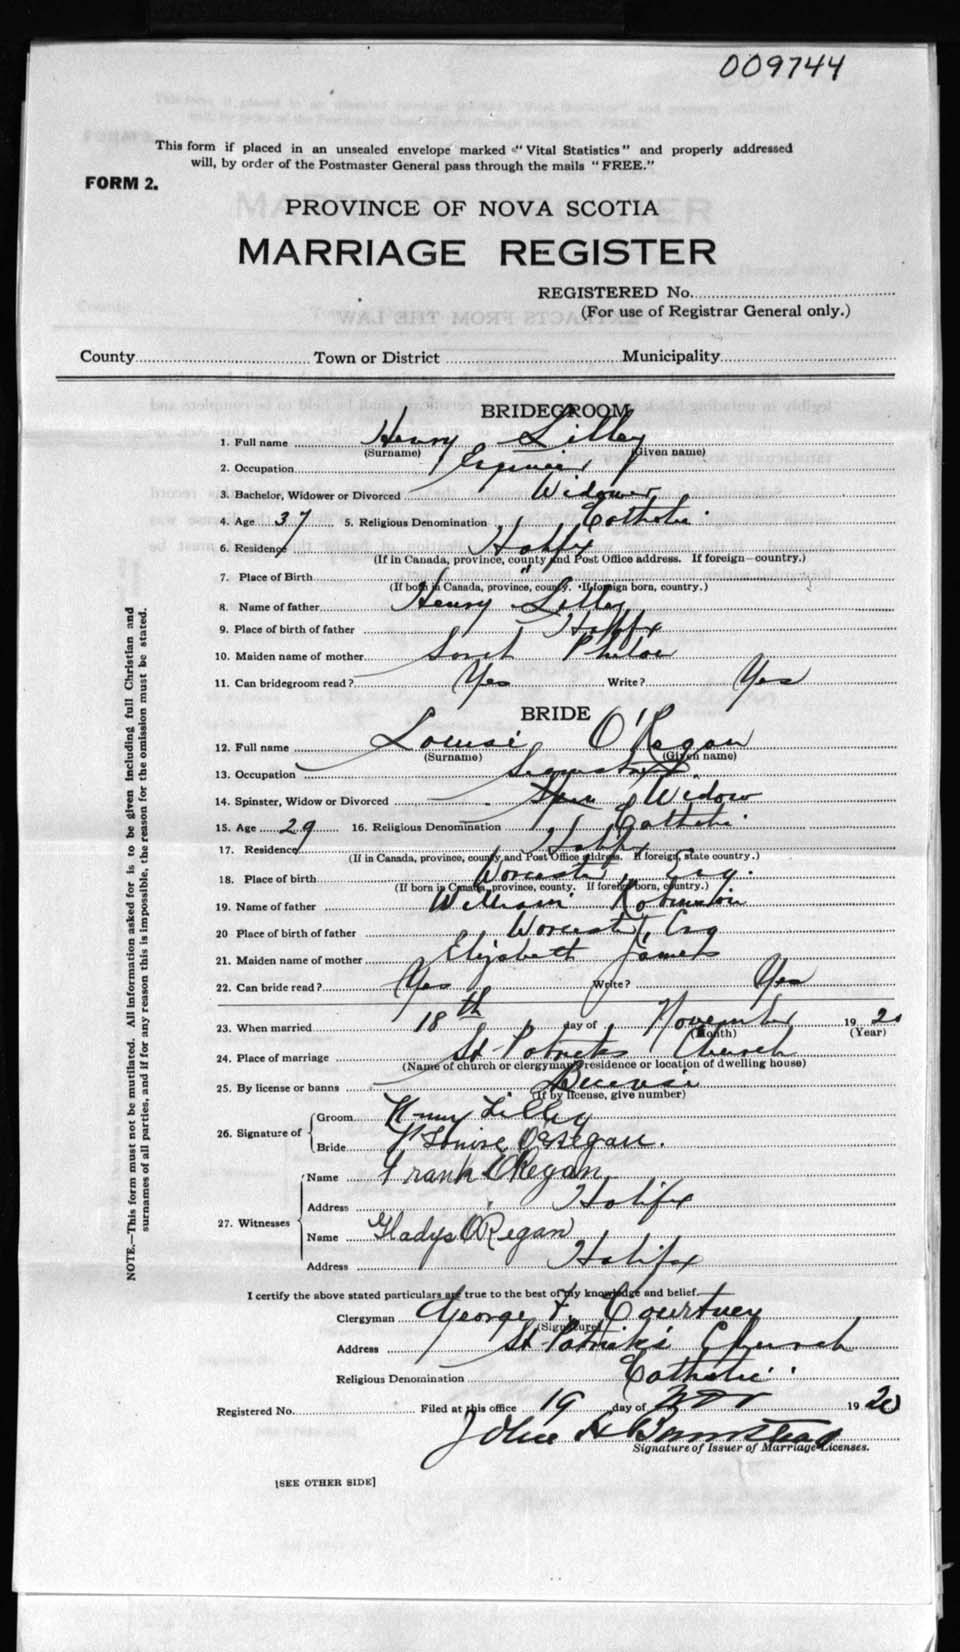 009744
This form if placed in an unsealed envelope marked "Vital Statistics" and properly addressed
will, by order of the Postmaster General pass through the mails "FREE."
FORM 2.
PROVINCE OF NOVA SCOTIA
MARRIAGE REGISTER
REGISTERED No.
(For use of Registrar General only.)
County Town or District Municipality
BRIDEGROOM
1. Full name Henry Lilley
(Surname) (Given name)
2. Occupation Engineer
3. Bachelor, Widower or Divorced Widower
4. Age 37 5. Religious Denomination Catholic
6. Residence Halifax
(If in Canada, province, county and Post Office address. If foreign—country.)
7. Place of Birth "
(If born in Canada, province, county. If foreign born, country.)
8. Name of father Henry Lilley
9. Place of birth of father Halifax
10. Maiden name of mother
11. Can bridegroom read? Yes Write? Yes
BRIDE
12. Full name Louise O'Regan
(Surname) (Given name)
13. Occupation
14. Spinster, Widow or Divorced Widow
15. Age 29 16. Religious Denomination Catholic
17. Residence Halifax
(If in Canada, province, county and Post Office address. If foreign, state country.)
18. Place of birth Worcester, Eng.
(If born in Canada, province, county. If foreign born, country.)
19. Name of father William Robinson
20 Place of birth of father Worcester, Eng
21. Maiden name of mother Elizabeth James
22. Can bride read? Yes Write? Yes
23. When married 18th day of November 1920
(Month) (Year)
24. Place of marriage St Patricks Church
(Name of church or clergyman, residence or location of dwelling house)
25. By license or banns License
(If by license, give number)
26. Signature of
Groom Henry Lilley
Bride Louise O'Regan.
27. Witnesses
Name Frank O'Regan
Address Halifax
Name Gladys O'Regan
Address Halifax
I certify the above stated particulars are true to the best of my knowledge and belief.
Clergyman George F. Courtney
(Signature)
Address St Patricks Church
Religious Denomination Catholic
Registered No. Filed at this office 19 day of Nov 1920
John H Barnstead
Signature of Issuer of Marriage Licenses.
[SEE OTHER SIDE]
NOTE.—This form must not be mutilated. All information asked for is to be given including full Christian and
surnames of all parties, and if for any reason this is impossible, the reason for the omission must be stated.